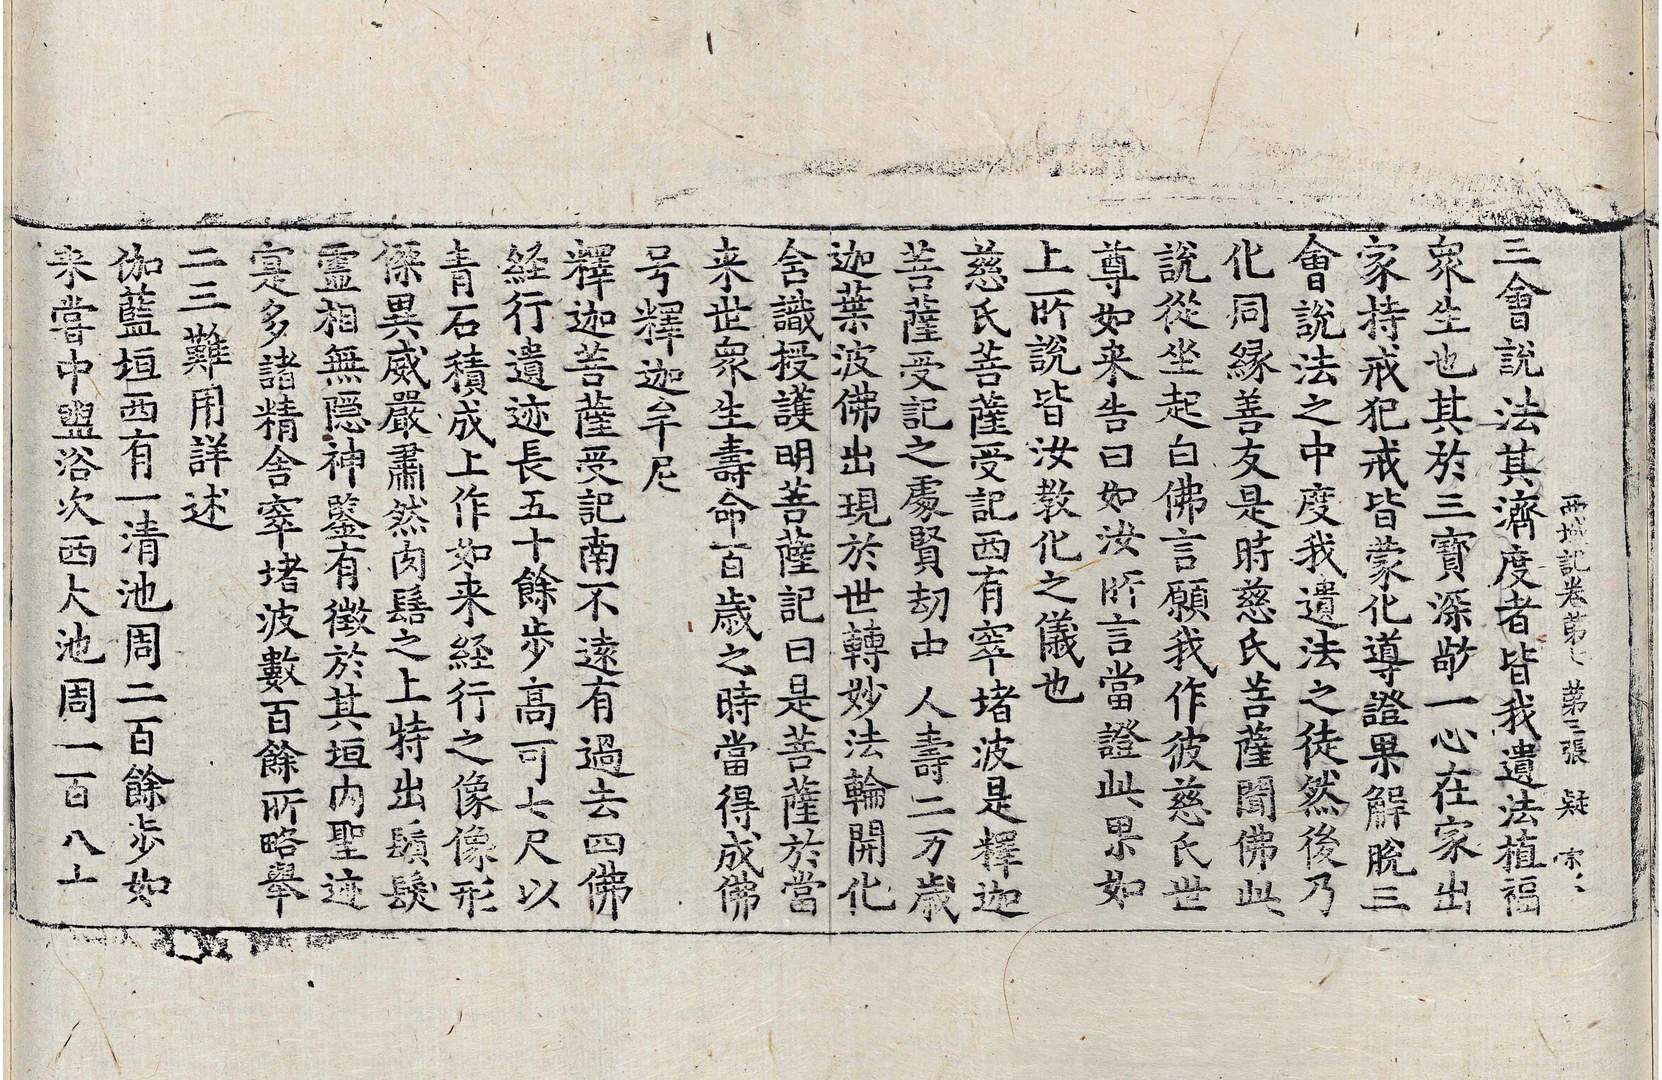 西域記卷第七 第三張 疑
三會說法其濟度者皆我遺法植福
衆生也其於三寶深敬一心在家出
家持戒犯戒皆蒙化導證果解脫三
會說法之中度我遺法之徒然後乃
化同縁善友是時慈氏菩薩聞佛此
說從坐起白佛言願我作彼慈氏世
尊如来告曰如汝所言當證此果如
上所說皆汝教化之儀也
慈氏菩薩受記西有窣堵波是釋迦
菩薩受記之處賢劫中 人壽二万歲
迦葉波佛出現於世轉妙法輪開化
含識授護明菩薩記曰是菩薩於當
来世衆生壽命百歲之時當得成佛
号釋迦牟尼
釋迦菩薩受記南不遠有過去四佛
経行遺迹長五十餘步高可七尺以
青石積成上作如来経行之像像形
傑異威嚴肅然肉髻之上特出鬚髮
靈相無隱神鑒有徵於其垣内聖迹
寔多諸精舍窣堵波數百餘所略舉
二三難用詳述
伽藍垣西有一清池周二百餘步如
来嘗中盥浴次西大池周一百八十